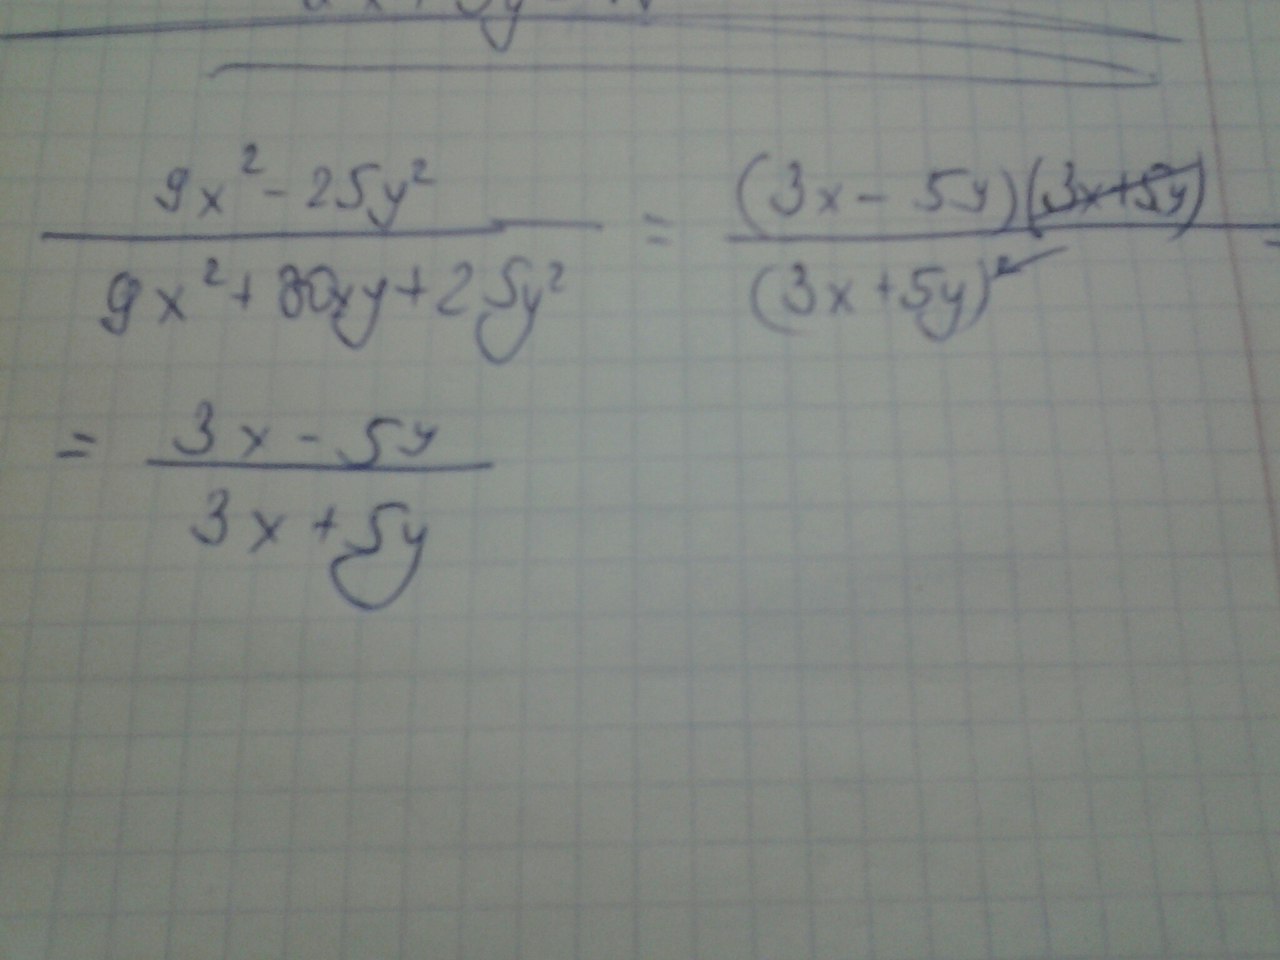 9x² - 25y² / 9x² + 30xy + 25y² = (3x - 5y)(3x+5y) / (3x+5y)² =
= 3x - 5y / 3x + 5y